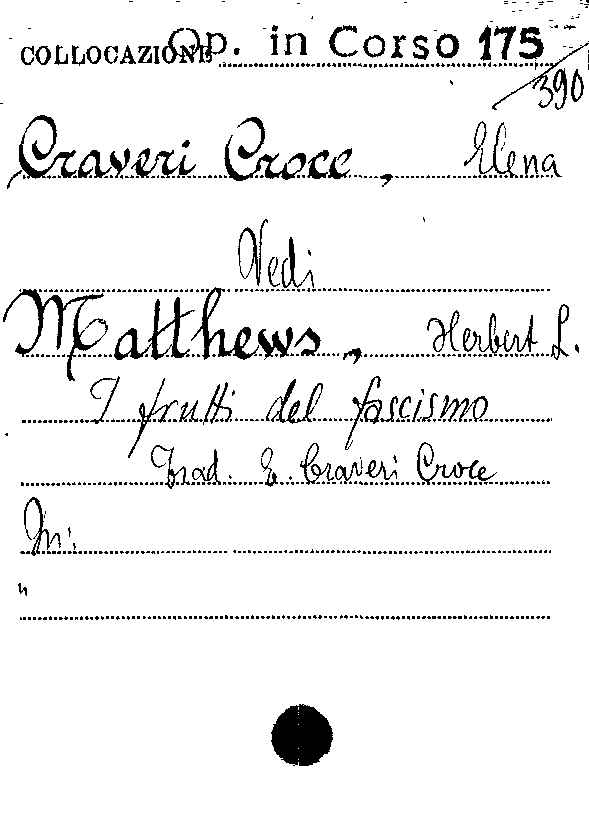 COLLOCAZIONE Op. in Corso 175
/390
Craveri Croce, Elena
Vedi
Matthews, Herbert L.
I frutti del fascismo
Trad. E. Craveri Croce
In:
"